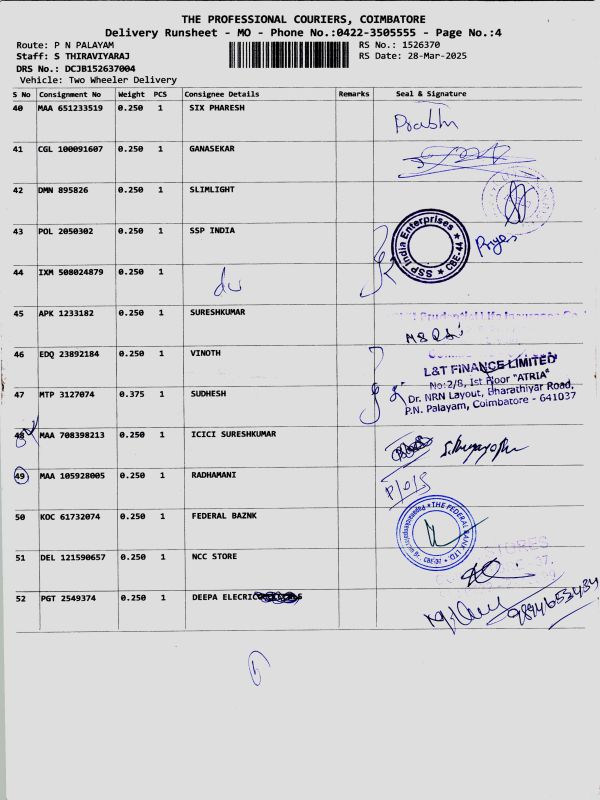 THE PROFESSIONAL COURIERS, COIMBATORE
Delivery Runsheet - MO - Phone No.:0422-3505555 - Page No.:4
Route: P N PALAYAM
RS No.: 1526370
Staff: S THIRAVIYARAJ
RS Date: 28-Mar-2025
DRS No.: DCJB152637004
Vehicle: Two Wheeler Delivery
S No Consignment No Weight PCS Consignee Details Remarks Seal & Signature
40 MAA 651233519 0.250 1 SIX PHARESH
Prabhu
41 CGL 100091607 0.250 1 GANASEKAR
42 DMN 895826 0.250 1 SLIMLIGHT
43 POL 2050302 0.250 1 SSP INDIA
SSP India Enterprises ★ CBE-44 ★
44 IXM 508024879 0.250 1
45 APK 1233182 0.250 1 SURESHKUMAR
46 EDQ 23892184 0.250 1 VINOTH
L&T FINANCE LIMITED
No:2/8, Ist Floor "ATRIA"
47 MTP 3127074 0.375 1 SUDHESH
Dr. NRN Layout, Bharathiyar Road,
P.N. Palayam, Coimbatore - 641037
48 MAA 708398213 0.250 1 ICICI SURESHKUMAR
49 MAA 105928005 0.250 1 RADHAMANI
50 KOC 61732074 0.250 1 FEDERAL BAZNK
THE FEDERAL BANK LTD. CBE-37
51 DEL 121590657 0.250 1 NCC STORE
STORES
52 PGT 2549374 0.250 1 DEEPA ELECRIC
9894653434